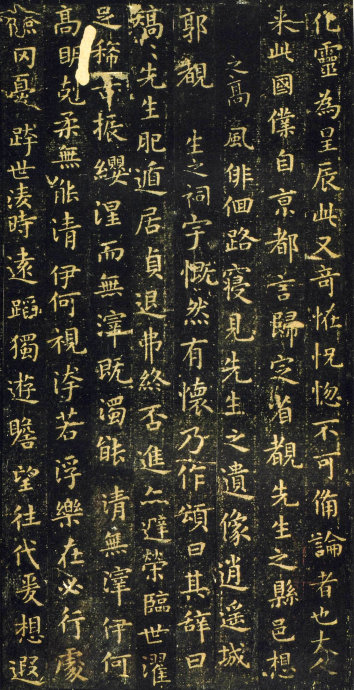 化靈為呈辰此又奇恠怳惚不可俻論者也大人
来此國僕自京都言歸定省覩先生之縣邑想
之高風俳佪路寢見先生之遺像逍遥城
郭觀生之祠宇慨然有懷乃作頌曰其辭曰
矯〻先生肥遁居貞退弗終否進亦避榮臨世濯
足稀振纓涅而無滓既濁能清無滓伊何
高明剋柔無能清伊何視洿若浮樂在必行處
險罔憂跨世淩時遠蹈獨遊瞻望往代爰想遐